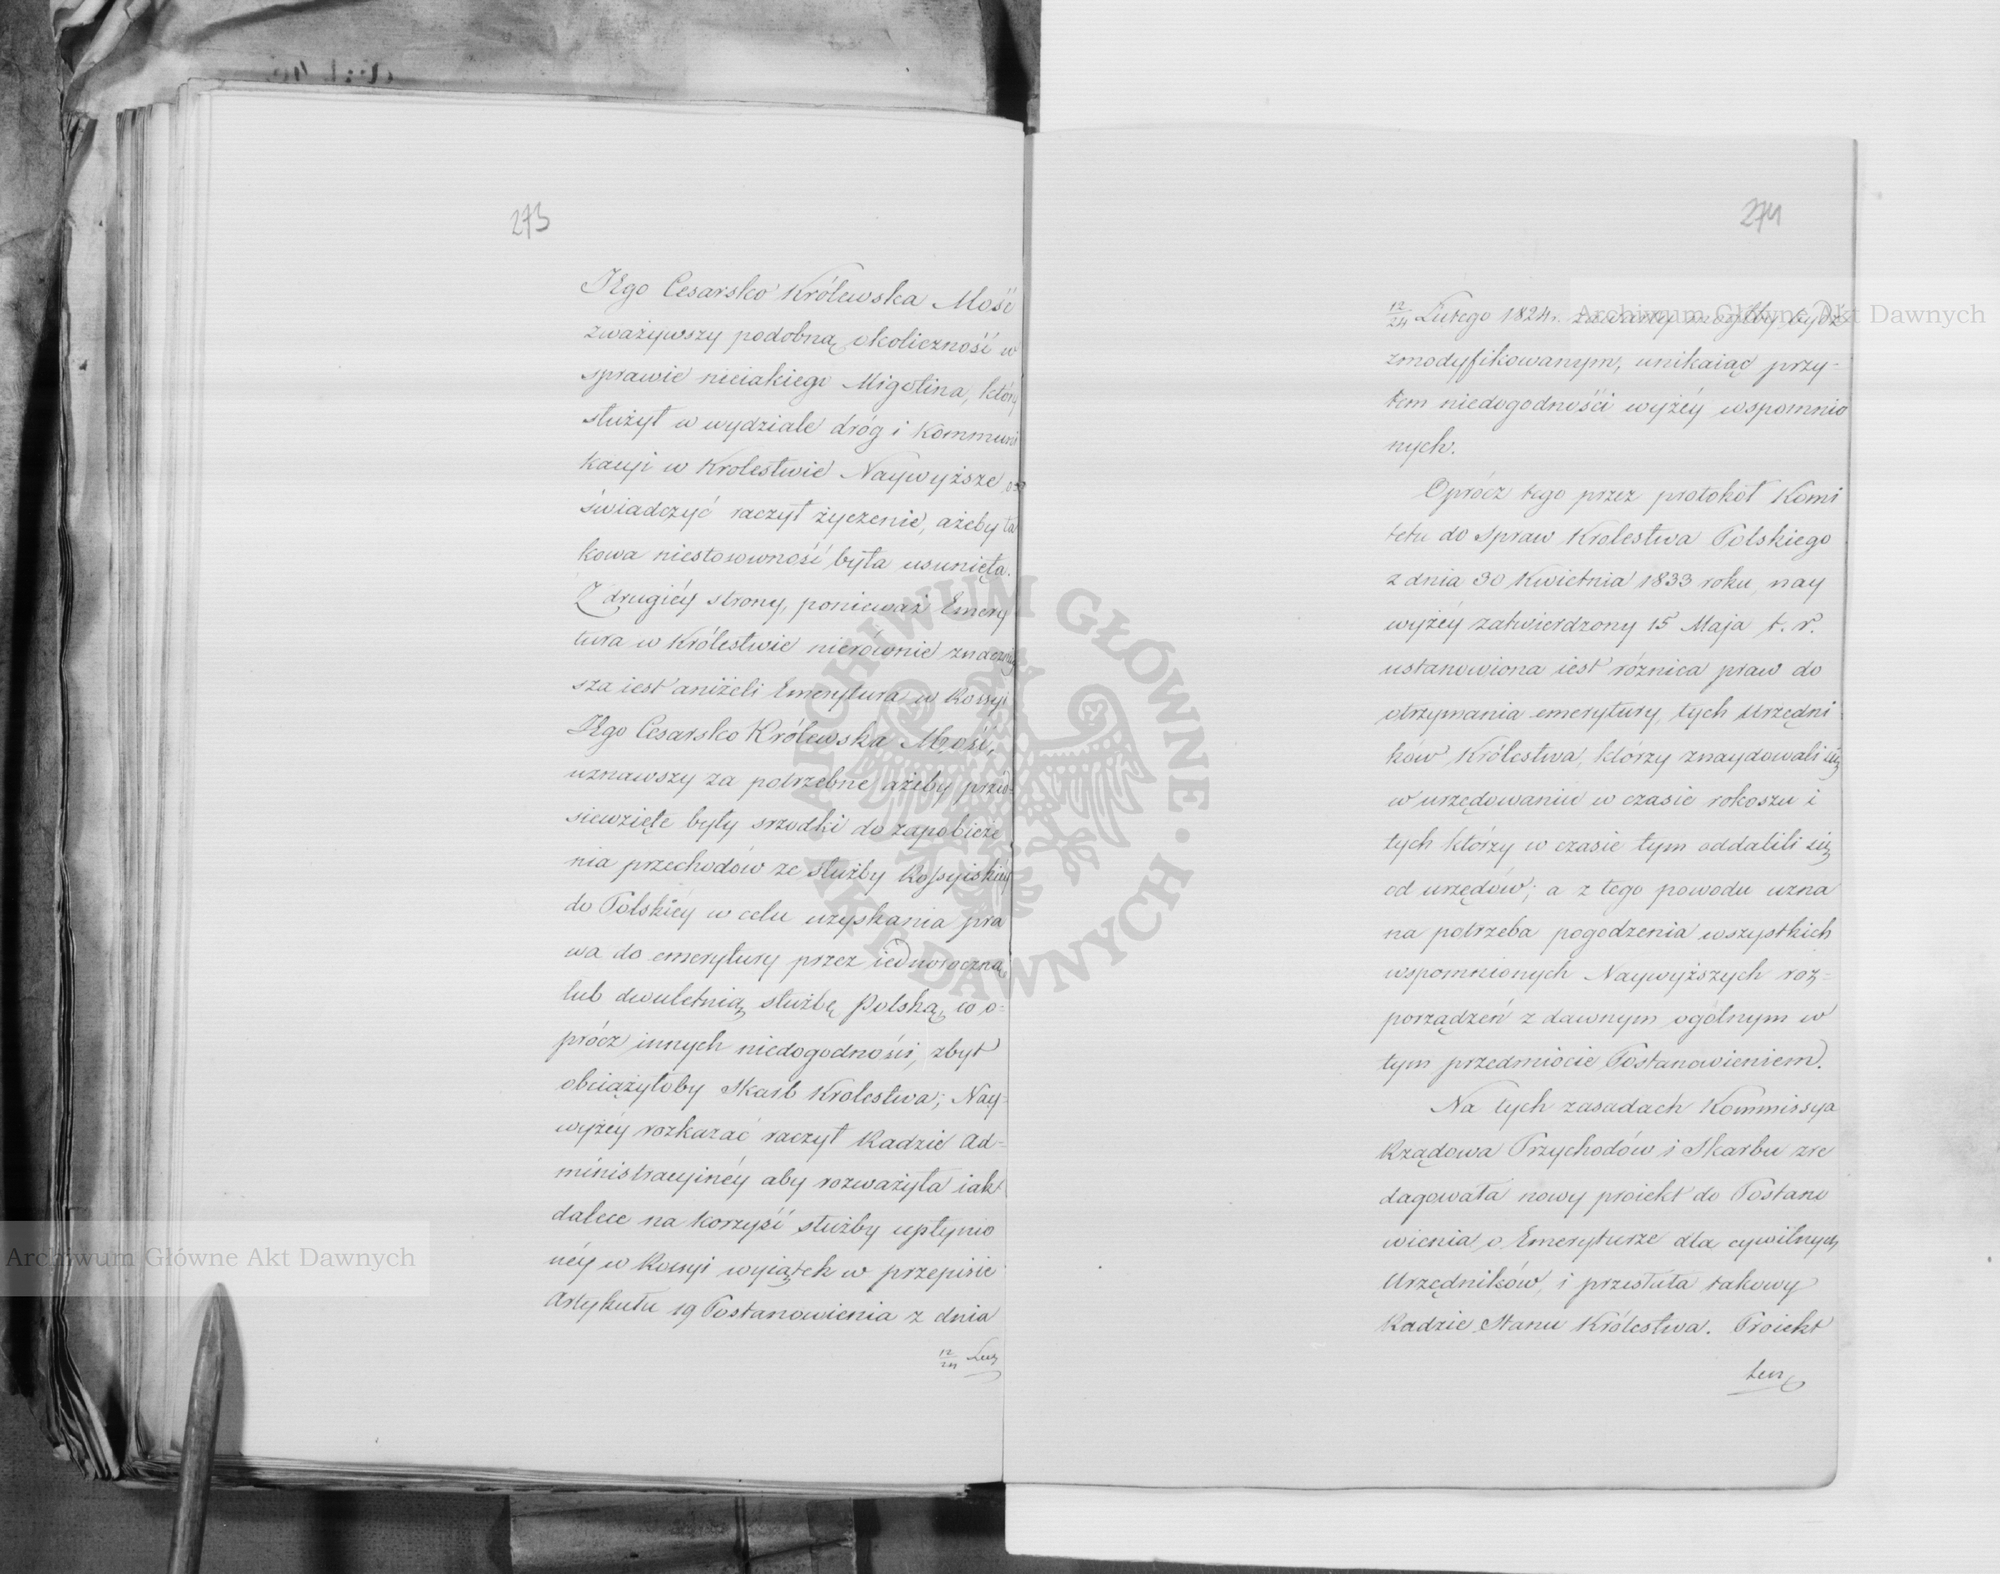 273
JEgo Cesarsko Królewska Mość
zważywszy podobną okoliczność w
sprawie nieiakiego Migolina, który
służył w wydziale dróg i Kommuni
kacyi w Krolestwie Naywyższe
świadczyć raczył życzenie, ażeby ta
kowa niestosowność była usunięta.
Z drugiéy strony, ponieważ Emery
tura w Królestwie nierównie znaczniey
sza iest aniżeli Emerytura w Rossyi
JEgo Cesarsko Królewska Mość,
uznawszy za potrzebne ażeby przed
siewzięte były srzodki do zapobieże
nia przechodów ze służby Rossyiskiéy
do Polskiéy w celu uzyskania pra
wa do emerytury przez iednoroczną
lub dwuletnią służbę Polską, co o-
prócz innych niedogodności, zbyt
obciążyłoby Skarb Krolestwa; Nay-
wyżéy rozkazać raczył Radzie Ad-
ministracyinéy aby rozważyła iak
dalece na korzyść służby upłynio
néy w Rossyi wyiątek w przepisie
Artykułu 19 Postanowienia z dnia
12/24 Lut
274
12/24 Lutego 1824 r. zawarty mógłby bydź
zmodyfikowanym, unikaiąc przy-
tem niedogodnośći wyżéy wspomnio
nych.
Oprócz tego przez protokół Komi
tetu do Spraw Krolestwa Polskiego
z dnia 30 Kwietnia 1833 roku, nay
wyżéy zatwierdzony 15 Maja t. r.
ustanowiona iest różnica praw do
otrzymania emerytury, tych Urzędni
ków Królestwa, którzy znaydowali się
w urzędowaniu w czasie rokoszu i
tych którzy w czasie tym oddalili się
od urzędów; a z tego powodu uzna
na potrzeba pogodzenia wszystkich
wspomnionych Naywyższych roz-
porządzeń z dawnym ogólnym w
tym przedmiocie Postanowieniem.
Na tych zasadach Kommissya
Rządowa Przychodów i Skarbu zre
dagowała nowy proiekt do Postano
wienia o Emeryturze dla cywilnych
Urzędników, i przesłała takowy
Radzie Stanu Królestwa. Proiekt
ten
Archiwum Główne Akt Dawnych
Archiwum Główne Akt Dawnych
ARCHIWUM GŁÓWNE · AKT DAWNYCH ·